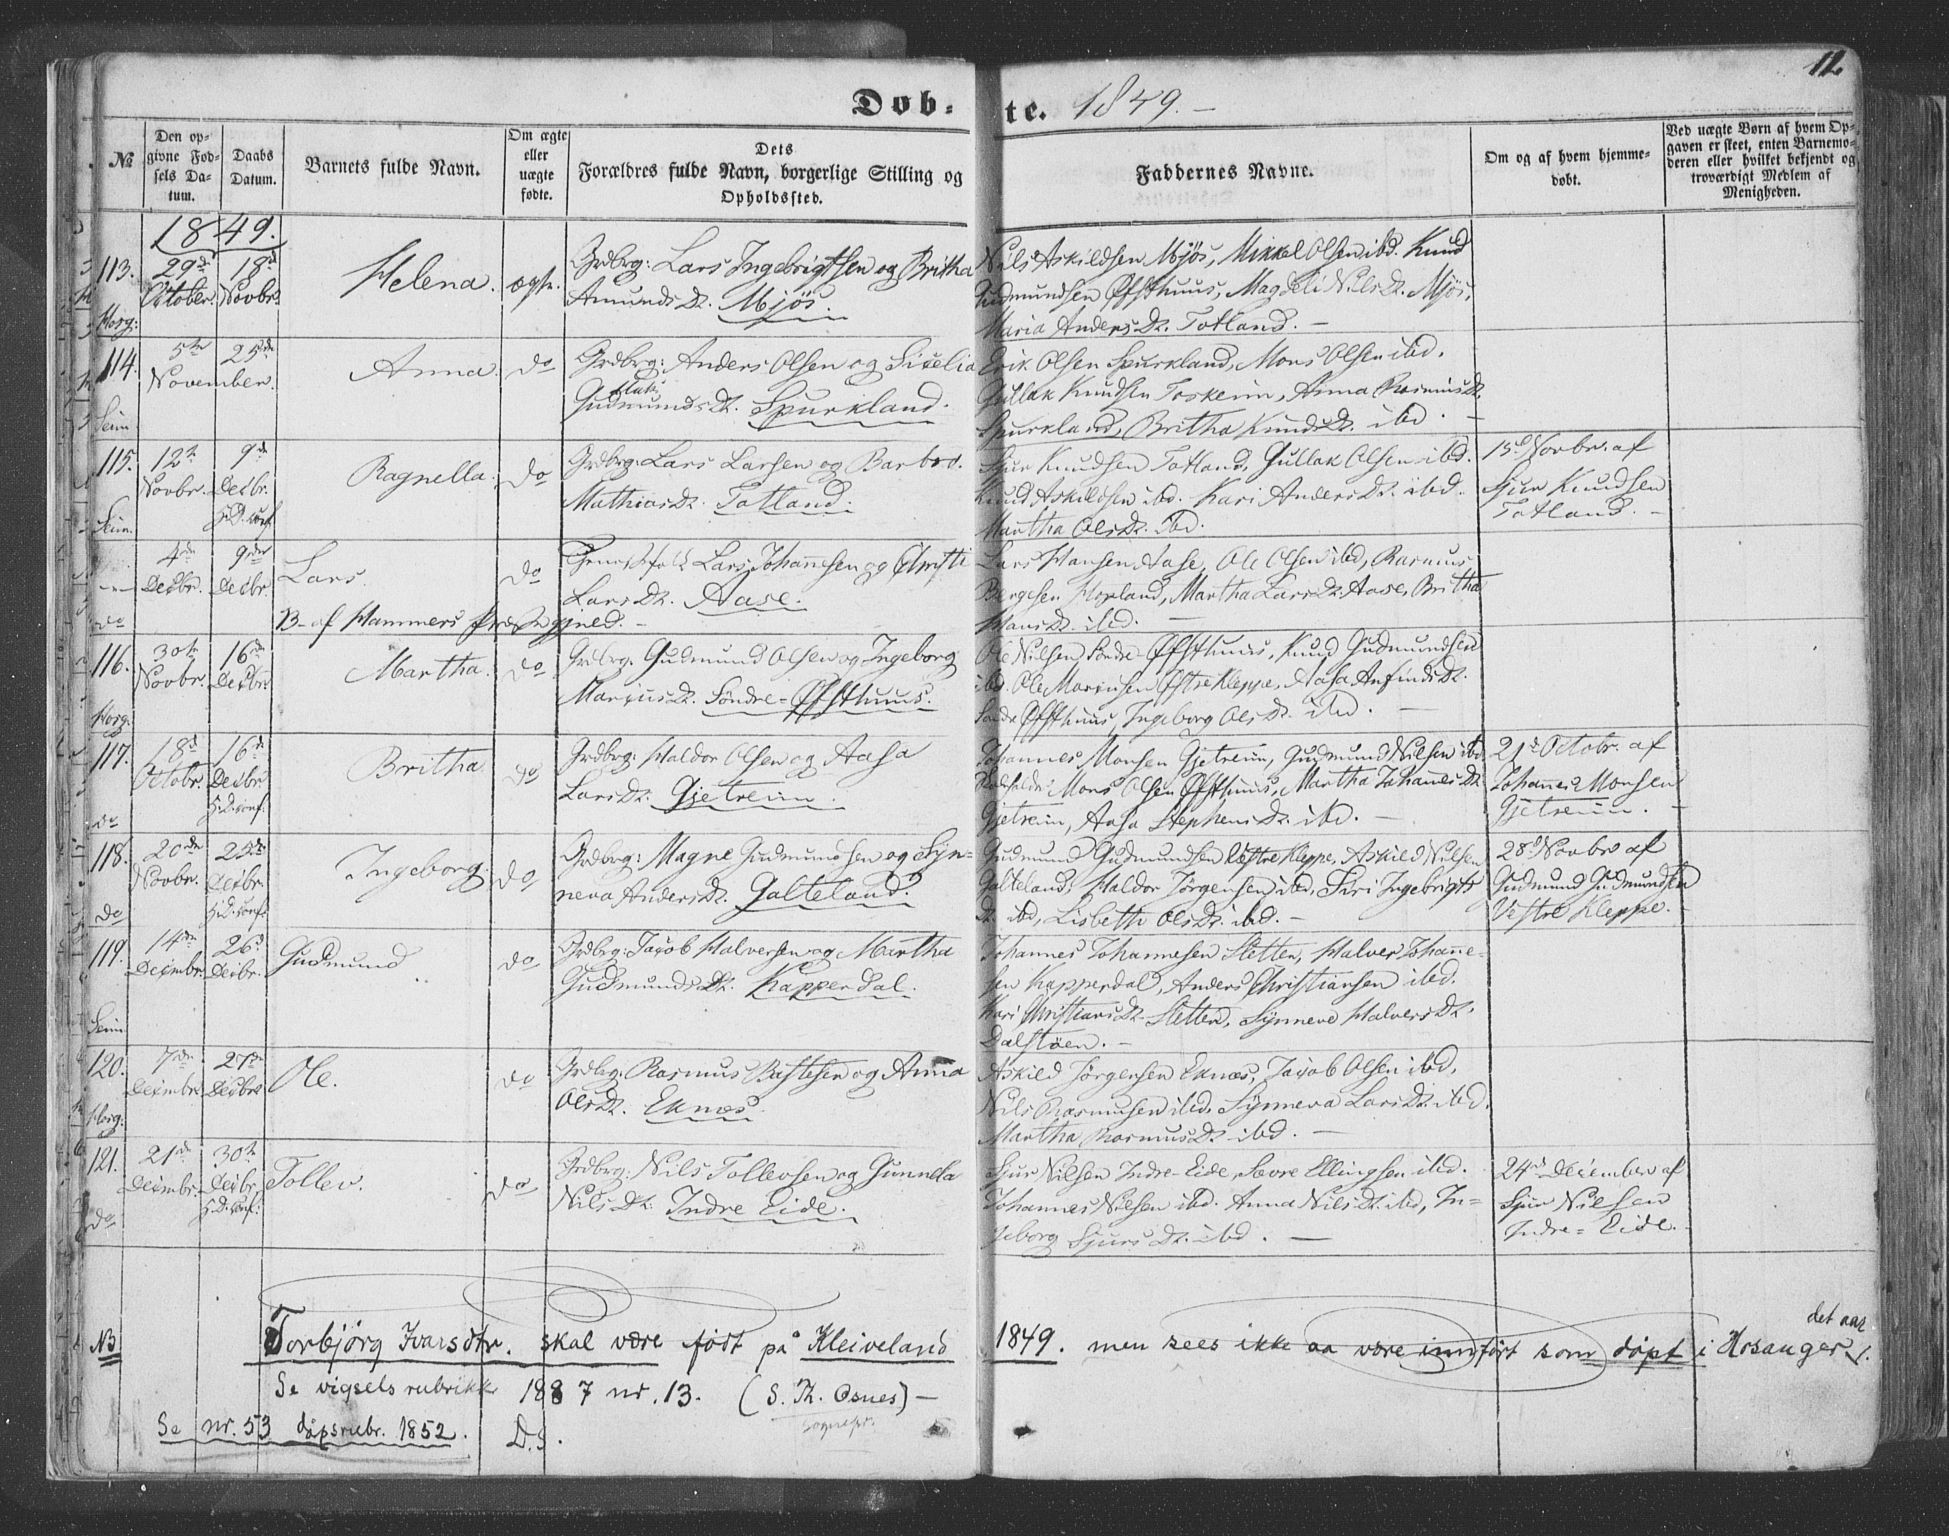 12
Døb-
te. 1849.-
№
Den opgivne Fødsels Datum.
Daabs Datum.
Barnets fulde Navn.
Om ægte eller uægte fødte.
Dets
Forældres fulde Navn, borgerlige Stilling og
Opholdssted.
Faddernes Navne.
Om og af hvem hjemmedøbt.
Ved uægte Børn af hvem Opgaven er skeet, enten Barnemoderen eller hvilket bekjendt og troværdigt Medlem af Menigheden.
1849.
113. 29de October. 18d Novbr. Helena. ægte. Grdbrg: Lars Ingebrigtsen og Britha
Amunds Dr. Mjøs.
Hosg:
Nils Askildsen Mjøs, Mikkel Olsen ibd. Knud
Gudmundsen Øfsthuus, Magdeli Nils Dr. Mjøs,
Maria Anders Dr. Totland. -
114. 5te 25de November. Anna. do Grdbrg: Anders Olsen og Sicelia
Gudmunds Dr. Spurkland.
Seim
Erik Olsen Spurkland, Mons Olsen ibd.
Gullak Knudsen Toskeim, Anna Rasmus Dr.
Spurkland, Britha Knuds Dr. ibd. -
115. 12te Novbr. 9de Decbr. H.D. conf. Ragnella. do Grdbrg: Lars Larsen og Barbro.
Mathias Dr. Totland.
Seim.
Sjur Knudsen Totland, Gullak Olsen ibd.
Knud Askildsen ibd. Kari Anders Dr. ibd.
Martha Ols Dr. ibd.
15d Novbr. af
Sjur Knudsen
Totland. -
4de Decbr. 9de Decbr. Lars. do Lars Johannesen og Christi
Lars Dr. Aase.
do B. af Hammers Præstegjæld. -
Lars Hansen Aase, Ole Olsen ibd, Rasmus
Bergesen Hopland, Martha Lars Dr. Aase, Britha
Hans Dr. ibd. -
116. 30te Novbr. 16de Decbr. Martha. do Grdbrg: Gudmund Olsen og Ingeborg
Marcus Dr. Søndre-Øfsthuus.
Hosg:
Ole Nilsen Søndre Øfsthuus, Knud Gudmundsen
ibd. Ole Marcusen Østre Kleppe, Aasa Anfinds Dr.
Søndre Øfsthuus, Ingeborg Ols Dr. ibd. -
117. 18d Octobr. 16de Decbr. H.D. conf. Britha. do Grdbrg: Haldor Olsen og Aasa
Lars Dr. Gjetreim.
do
Johannes Monsen Gjetreim, Gudmund Nilsen ibd
Mons Olsen Øfsthuus, Martha Johannes Dr.
Gjetreim, Aasa Stephens Dr. ibd. -
21de Octobr. af
Johannes Monsen
Gjetreim. -
118. 20de Novbr. 25de Decbr. H.D. conf. Ingeborg. do Grdbrg: Magne Gudmundsen og Syn-
neva Anders Dr. Galteland.
do
Gudmund Gudmundsen Vestre Kleppe, Askild Nilsen
Galteland, Haldor Jørgensen ibd, Siri Ingebrigts
Dr. ibd, Lisbeth Ols Dr. ibd. -
28d Novbr af
Gudmund Gudmundsen
Vestre Kleppe. -
119. 14de Decembr. 26d Decbr. Gudmund do Grdbrg: Jacob Halversen og Martha
Gudmunds Dr. Kapperdal.
Seim
Johannes Johannesen Sletten, Halver Johanne-
sen Kapperdal, Anders Christiansen ibd.
Kari Christians Dr. Sletten, Synneve Halvers Dr.
Dalstøen. -
120. 7de Decembr. 27de Decbr. Ole. do Grdbrg: Rasmus Bastesen og Anna
Ols Dr. Eknæs.
Hosg:
Askild Jørgensen Eknæs, Jacob Olsen ibd,
Nils Rasmusen ibd. Synneva Lars Dr. ibd.
Martha Rasmus Dr. ibd. -
121. 21de Decembr. 30te Decbr. H.D. conf. Tollev. do Grdbrg: Nils Tollevsen og Gunnela
Nils Dr. Indre Eide.
do
Sjur Nilsen Indre-Eide, Sevre Ellingsen ibd.
Johannes Nilsen ibd. Anna Nils Dr. ibd, In-
geborg Sjurs Dr. ibd. -
24de December af
Sjur Nilsen
Indre-Eide.
NB Torbjörg Ivarsdtr. skal være født på Kleiveland 1849. men sees ikke aa være innført som døpt i Hosanger det aar.
Se vigselsrubrikk 1887 nr. 13. (S. Th. Osnes) -
sognepr.
Se nr. 53 døpsrubr. 1852. D.s.